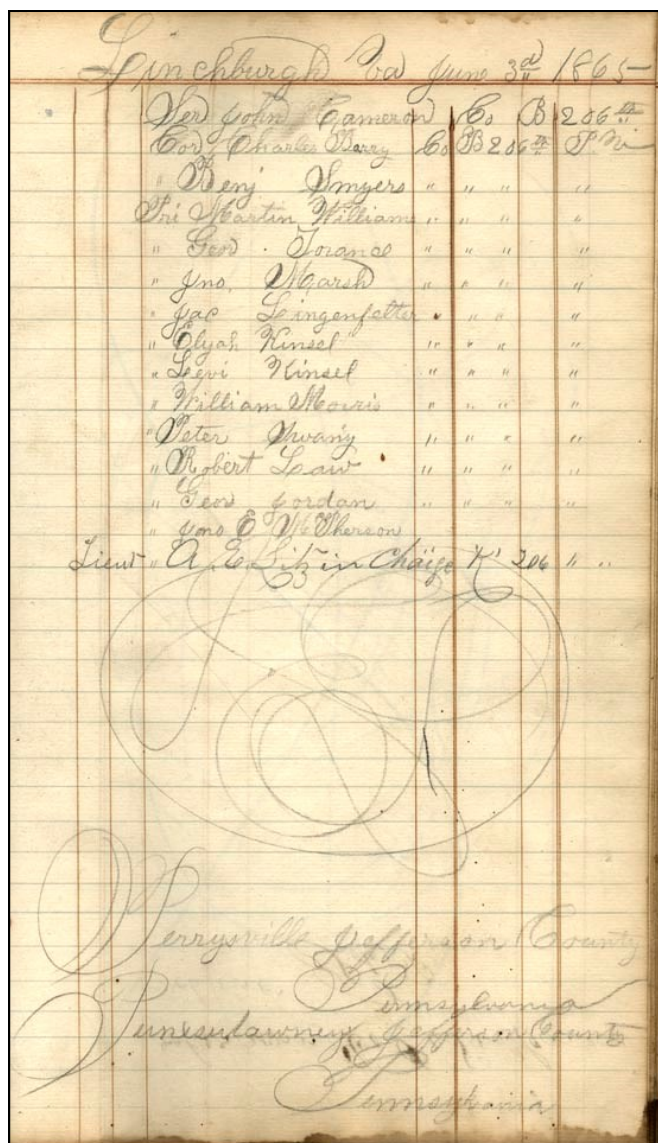 Linchburgh Va June 3d 1865
Ser John Cameron Co B 206th
Cor Charles Barry Co B 206th P.
" Benj Smyers " " " "
Pri Martin Williams " " " "
" Geo Torance " " " "
" Jno. Marsh " " " "
" Jac Lingenfelter " " " "
" Elijah Kinsel " " " "
" Levi Kinsel " " " "
" William Morris " " " "
" Peter " " " "
" Robert Law " " " "
" Geo Jordan " " " "
" Jno E McPherson
Lieut " A. E. Litz in Charge K 206 " "
Perrysville Jefferson County
Pennsylvania
Punxsutawney Jefferson County
Pennsylvania